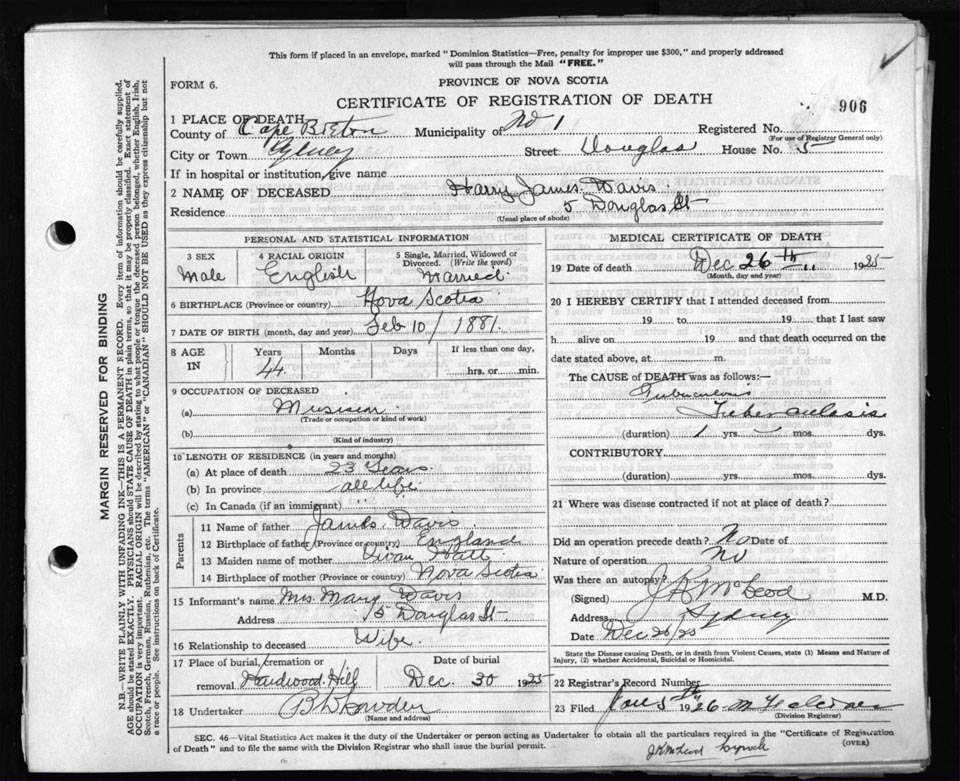 This form if placed in an envelope, marked "Dominion Statistics—Free, penalty for improper use $300," and properly addressed
will pass through the Mail "FREE."
FORM 6.
PROVINCE OF NOVA SCOTIA
CERTIFICATE OF REGISTRATION OF DEATH
906
1 PLACE OF DEATH
County of Cape Breton Municipality of No 1 Registered No.
(For use of Registrar General only)
City or Town Sydney Street Douglas House No. 5
If in hospital or institution, give name
2 NAME OF DECEASED Harry James Davis
Residence 5 Douglas St
(Usual place of abode)
PERSONAL AND STATISTICAL INFORMATION
3 SEX Male
4 RACIAL ORIGIN English
5 Single, Married, Widowed or Divorced. (Write the word) Married
6 BIRTHPLACE (Province or country) Nova Scotia
7 DATE OF BIRTH (month, day and year) Feb 10/1881.
8 AGE IN Years 44 Months Days If less than one day, hrs. or min.
9 OCCUPATION OF DECEASED
(a) Musician
(Trade or occupation or kind of work)
(b)
(Kind of industry)
10 LENGTH OF RESIDENCE (in years and months)
(a) At place of death 23 Years
(b) In province all life
(c) In Canada (if an immigrant)
Parents
11 Name of father James Davis
12 Birthplace of father (Province or country) England
13 Maiden name of mother Hatt
14 Birthplace of mother (Province or country) Nova Scotia
15 Informant's name Mrs. Mary Davis
Address 5 Douglas St.
16 Relationship to deceased Wife.
17 Place of burial, cremation or removal Hardwood Hill Date of burial Dec. 30 1925
18 Undertaker
(Name and address)
MEDICAL CERTIFICATE OF DEATH
19 Date of death Dec 26th 1925
(Month, day and year)
20 I HEREBY CERTIFY that I attended deceased from
19 to 19 that I last saw
h alive on 19 and that death occurred on the
date stated above, at m.
The CAUSE of DEATH was as follows:—
Tuberculosis
(duration) 1 yrs. mos. dys.
CONTRIBUTORY
(duration) yrs. mos. dys.
21 Where was disease contracted if not at place of death?
Did an operation precede death? No Date of
Nature of operation No
Was there an autopsy?
(Signed) J K McLeod M.D.
Address Sydney
Date Dec 26/25
State the Disease causing Death, or in death from Violent Causes, state (1) Means and Nature of
Injury, (2) whether Accidental, Suicidal or Homicidal.
22 Registrar's Record Number
23 Filed Jan 5th 1926
(Division Registrar)
SEC. 46—Vital Statistics Act makes it the duty of the Undertaker or person acting as Undertaker to obtain all the particulars required in the "Certificate of Registration
of Death" and to file the same with the Division Registrar who shall issue the burial permit.
(OVER)
J K McLeod
MARGIN RESERVED FOR BINDING
N.B.—WRITE PLAINLY WITH UNFADING INK—THIS IS A PERMANENT RECORD. Every item of information should be carefully supplied.
AGE should be stated EXACTLY. PHYSICIANS should STATE CAUSE OF DEATH in plain terms, so that it may be properly classified. Exact statement of
OCCUPATION is very important. RACIAL ORIGIN will be described by stating to what people or tongue the deceased person belonged, whether English, Irish,
Scotch, French, German, Russian, Ruthenian, etc. The terms "AMERICAN" or "CANADIAN" SHOULD NOT BE USED as they express citizenship but not
a race or people. See instructions on back of Certificate.